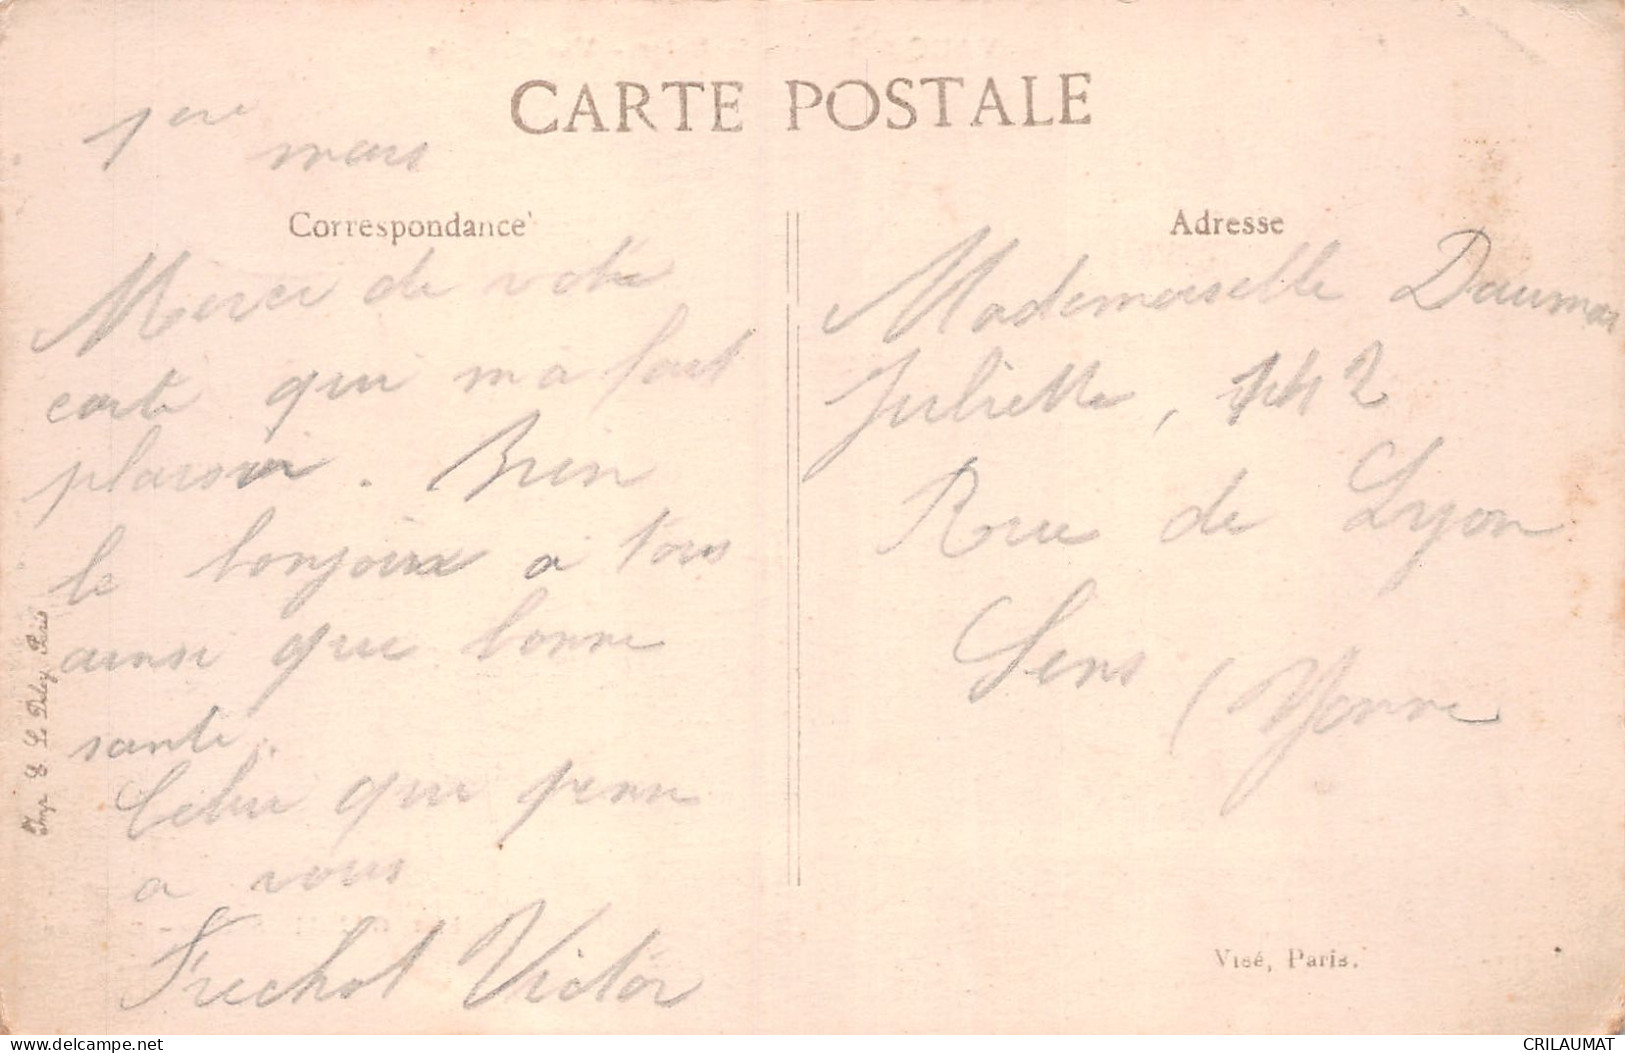 CARTE POSTALE
1ere mars
Correspondance
Merci de vote
carte qui ma fait
plaisir. Bien
le bonjour a tous
ainsi que bonne
santé.
Celui qui pense
a vous
Frechot Victor
Adresse
Mademoiselle
Juliette, 142
Rue de Lyon
Sens (Yonne
Visé, Paris.
Imp. E. Le Deley, Paris
delcampe.net
CRILAUMAT